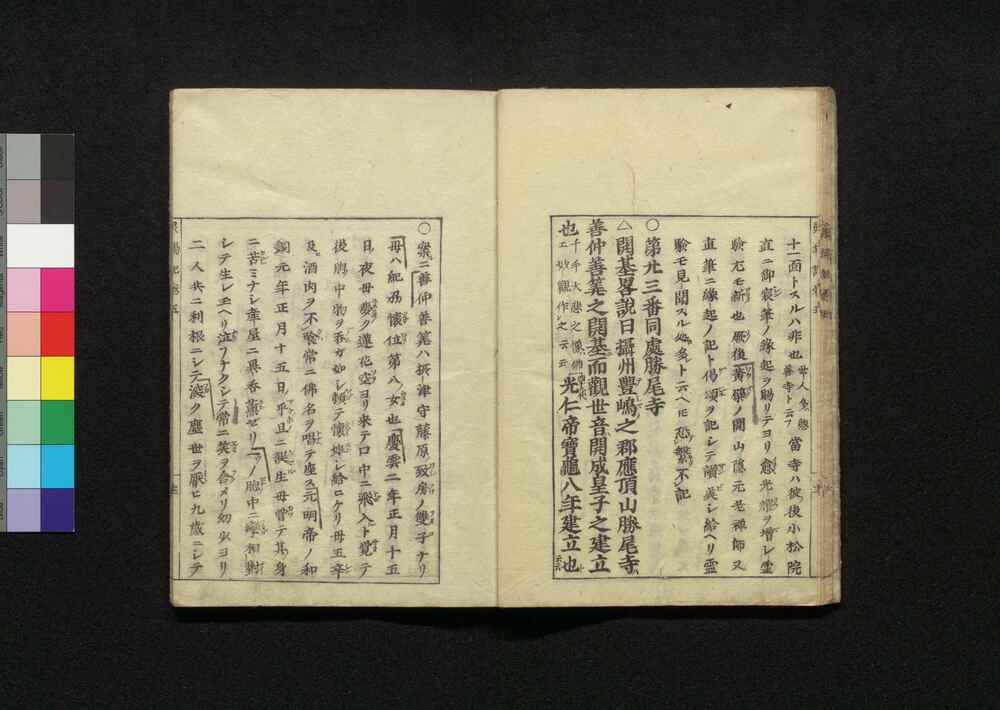 十一面トスルハ非也 當寺ハ彼後小松院
直ニ御宸筆ノ縁起ヲ賜リテヨリ愈光耀ヲ増シ霊
験尤モ新也厥後黄檗ノ開山隠元老禅師又
直筆ニ縁起ノ記ト偈頌ヲ記シテ讃美シ給ヘリ霊
験モ見聞スル処多ト云ヘモ恐繁不記
○第廿三番同處勝尾寺
△開基畧説日攝州豐嶋之郡應頂山勝尾寺
善仲善筭之開基而觀世音開成皇子之建立
也 千手大悲之像 妙觀作之云云 光仁帝寶龜八年建立也
○案ニ善仲善筭ハ摂津守藤原致房ノ雙子ナリ
母ハ紀氏懐位第八女也慶雲二年正月十五
日夜母夢ク蓮花空ヨリ来テ口中ニ飛入ト覚テ
後胸中物ヲ呑ガ如シ頓テ懐妊シ給ヒケリ母五辛
及酒肉ヲ不喰常ニ佛名ヲ唱テ座ス元明帝ノ和
銅元年正月十五日ノ平旦ニ誕生母曽テ其身
ニ苦ミナシ産屋ニ異香薫ゼリ ノ胞中ニ 相對
シテ生レ玉ヘリ泣ヿナクシテ常ニ笑ヲ含メリ幼少ヨリ
二人共ニ利根ニシテ深ク塵世ヲ厭ヒ九歳ニシテ